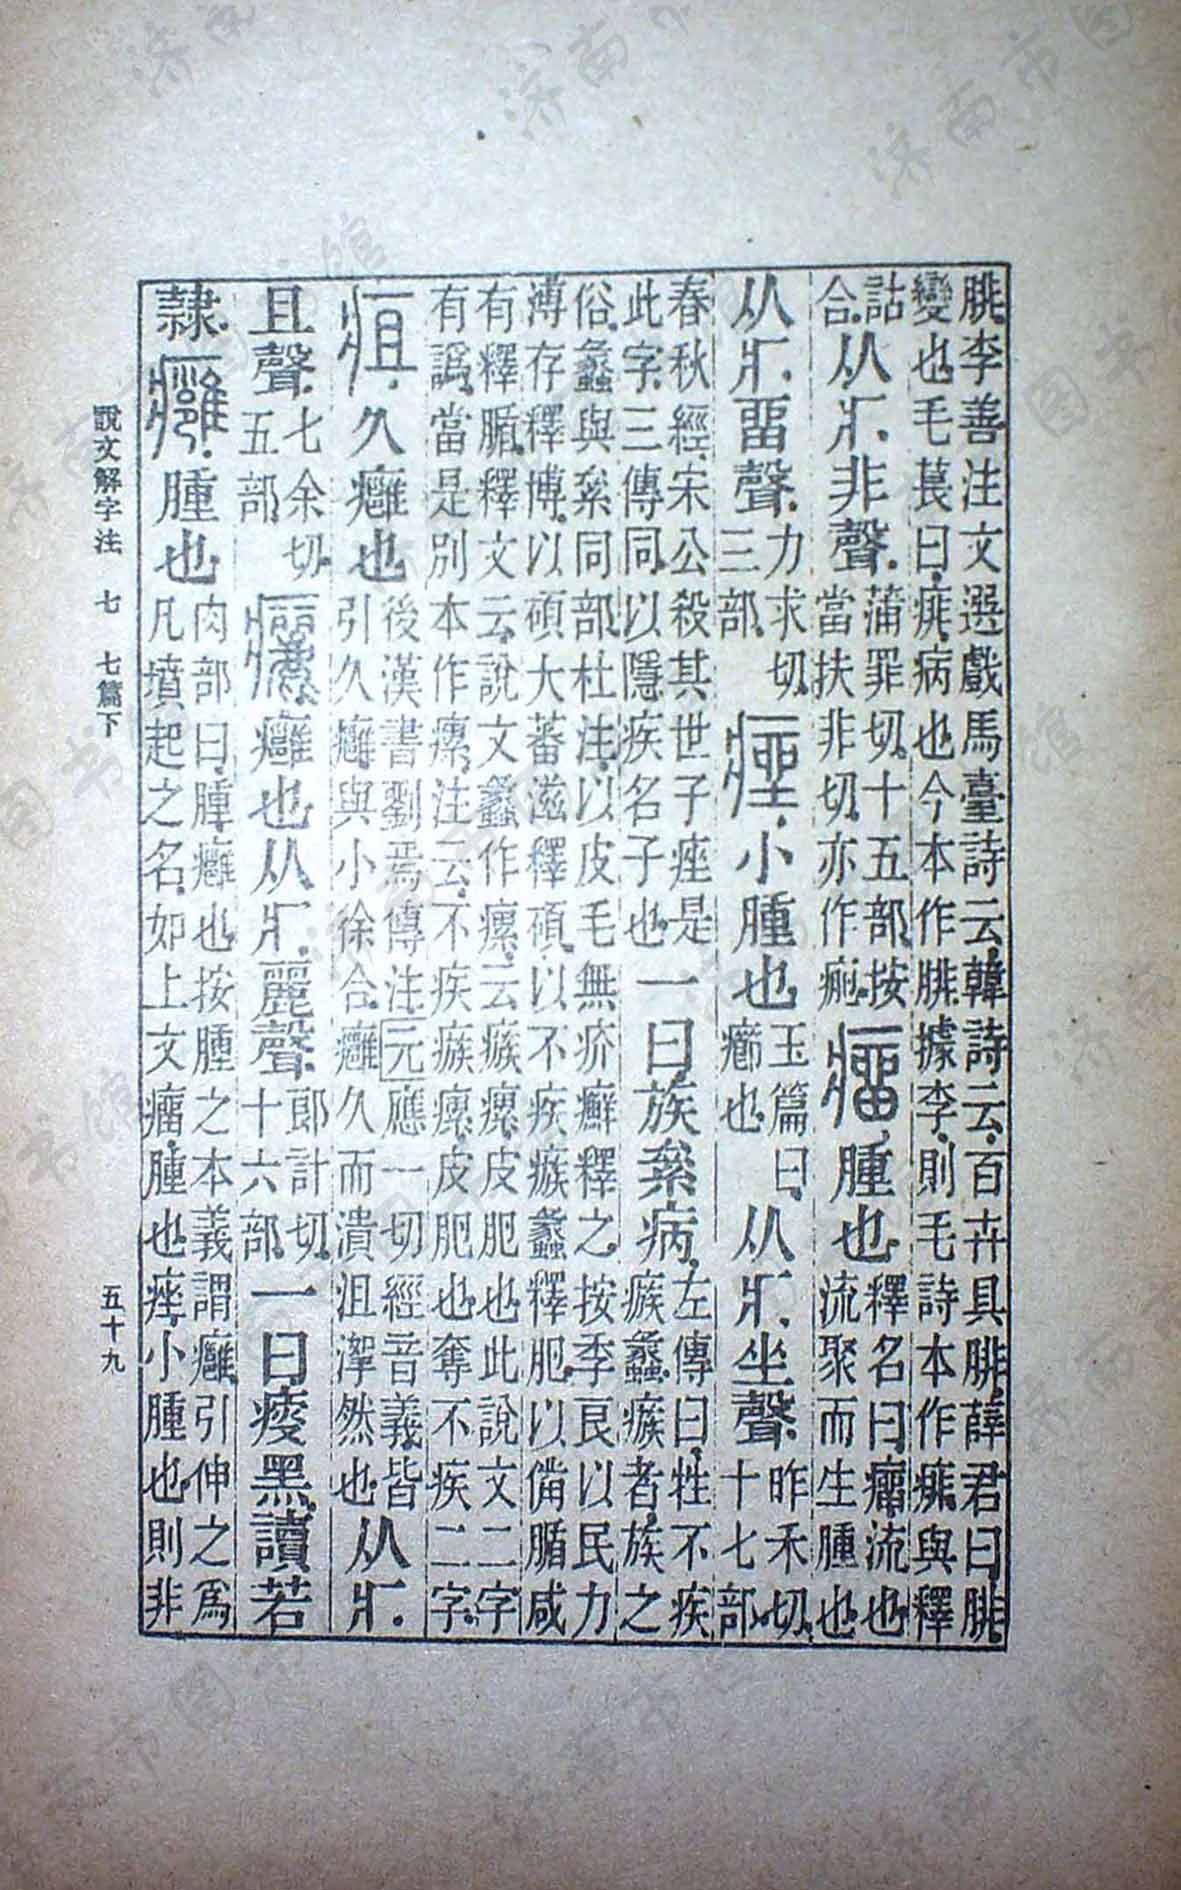 腓.李善注文選戲馬臺詩云.韓詩云.百卉具腓.薛君曰.腓.
變也毛萇曰.痱.病也今本作腓.據李.則毛詩本作痱.與釋
詁
合.
从疒.非聲.
蒲罪切.十五部.按
當扶非切.亦作疿.
瘤.腫也.
釋名曰.瘤.流也
流聚而生腫也
从疒.畱聲.
力求切.
三部.
痤.小腫也.
玉篇曰.
癤也
从疒.坐聲.
昨禾切.
十七部.
春秋經.宋公殺其世子痤.是
此字.三傳同.以隱疾名子也.
一曰.族絫病.
左傳曰.牲不疾
瘯蠡.瘯者.族之
俗.蠡與絫同部.杜注.以皮毛無疥癬釋之.按李良以民力
溥存釋博.以碩大蕃滋釋碩.以不疾瘯蠡釋肥.以備腯咸
有釋腯.釋文云.說文蠡作瘰.云.瘯瘰.皮肥也.此說文二字
有譌.當是別本作瘰.注云.不疾瘯瘰.皮肥也.奪不疾二字.
疽.久癰也
後漢書劉焉傳注.元應一切經音義.皆
引久癰與小徐合.癰久而潰沮洳然也.
从疒.
且聲.
七余切.
五部.
癘.癰也.从疒.麗聲.
郎計切.
十六部.
一曰.瘦黑.讀若
隸.
癰.腫也.
肉部曰.腫.癰也.按腫之本義謂癰.引伸之爲
凡墳起之名.如上文瘤.腫也.痤.小腫也.則非
說文解字注　七　七篇下
五十九